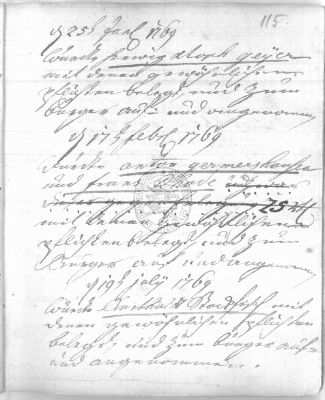 115.
d 25t Janl 1769
Wurde Herwig Storck geijer
mit denen gewöhnlichen
pflichten belegt und zum
bürger auf und angenommen
d 17t febrl 1769
Wurde anton germershausen
und frantz
75
mit denen gewöhnlichen
pflichten belegt und zum
bürger auf und angenommen
d 19t july 1769
Wurde Barthold Stockfisch mit
denen gewöhnlichen pflichten
belegt und zum bürger auf
und angenommen.